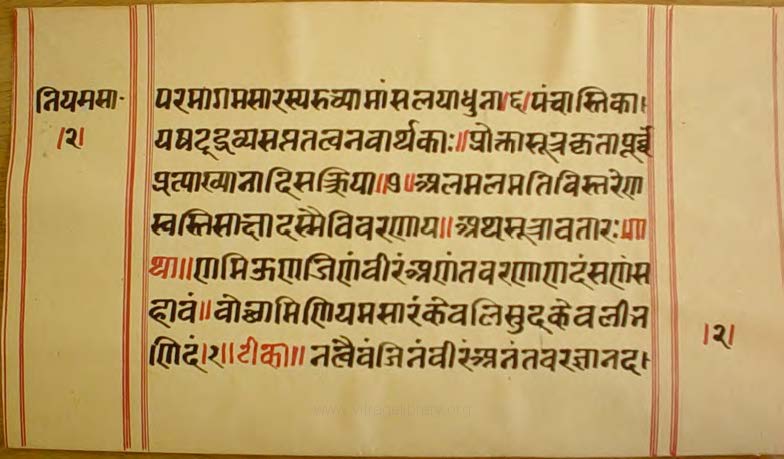 नियमसा॰
।२।
परमागमसारस्यरुच्यामांसलयाधुना।६।पंचास्तिका।
यषट्द्रव्यसप्ततत्वनवार्थकाः॥प्रोक्तासूत्रकृतापूर्वं
प्रत्याख्यानादिसत्क्रिया॥७॥अलमलमतिविस्तरेण
स्वस्तिसाक्षादस्मैविवरणाय॥अथसूत्रावतारः॥गा
था॥॥णमिऊणजिणंवीरंअणंतवरणाणदंसणंस
हावं॥वोछामिणियमसारंकेवलिसुदकेवलीन
णिदं।१॥टीका॥॥नत्वैवंजिनंवीरंअनंतवरज्ञानद।
।२।
www.vitragelibrary.org